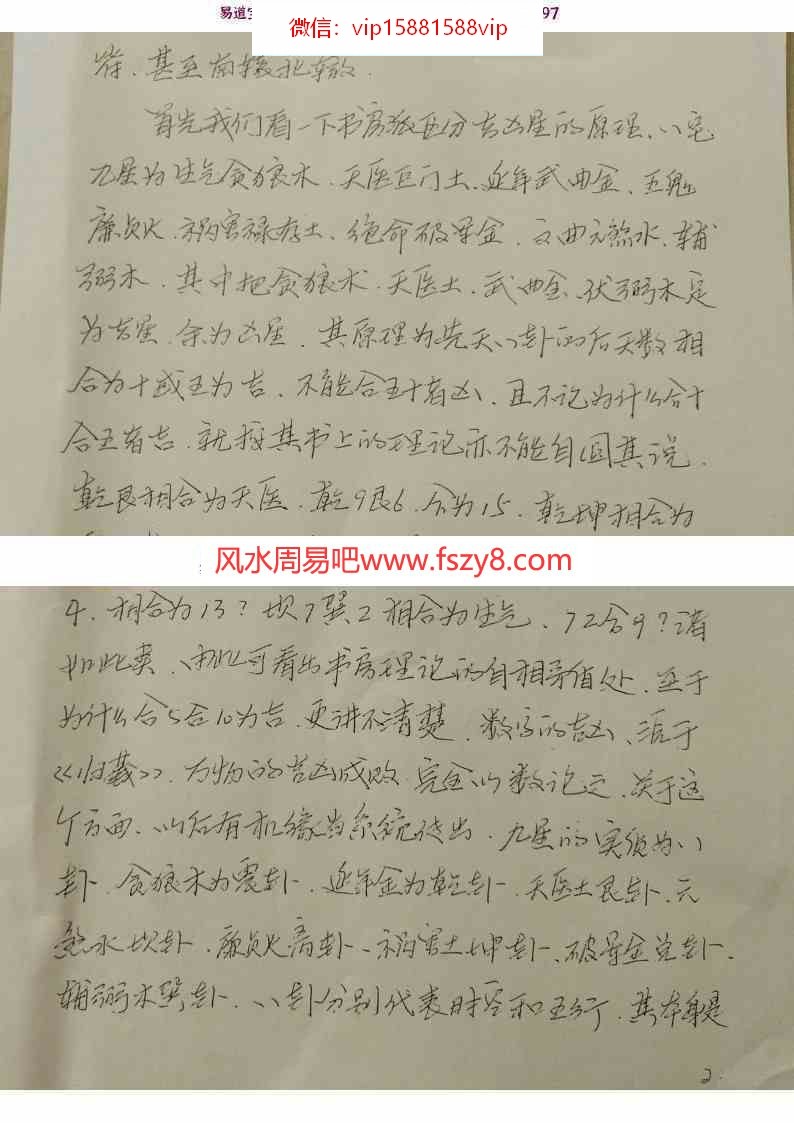 易道
97
微信：vip15881588vip
甚至南辕北辙.
首先我们看一下书房派区分吉凶星的原理、八宅
九星为生气贪狼木、天医巨门土、延年武曲金、五鬼
廉贞火、祸害禄存土、绝命破军金、文曲六煞水、辅
弼木、其中把贪狼木、天医土、武曲金、伏弼木定
为吉星、余为凶星、其原理为先天八卦的后天数相
合为十或五为吉、不能合五十者凶、且不论为什么合十
合五者吉、就按其书上的理论亦不能自圆其说、
乾艮相合为天医、乾9艮6、合为15、乾坤相合为
风水周易吧www.fszy8.com
4、相合为13？坎7巽2相合为生气、72合9？诸
如此类、由此可看出书房理论的自相矛盾处、至于
为什么合5合10为吉、更讲不清楚、数字的吉凶、源于
《归藏》、万物的吉凶成败、完全以数论定、关于这
个方面、以后有机缘当系统传出、九星的实质为八
卦、贪狼木为震卦、延年金为乾卦、天医土艮卦、六
煞水坎卦、廉贞火离卦、祸害土坤卦、破军金兑卦、
辅弼木巽卦、八卦分别代表时空和五行、其本身是
2.